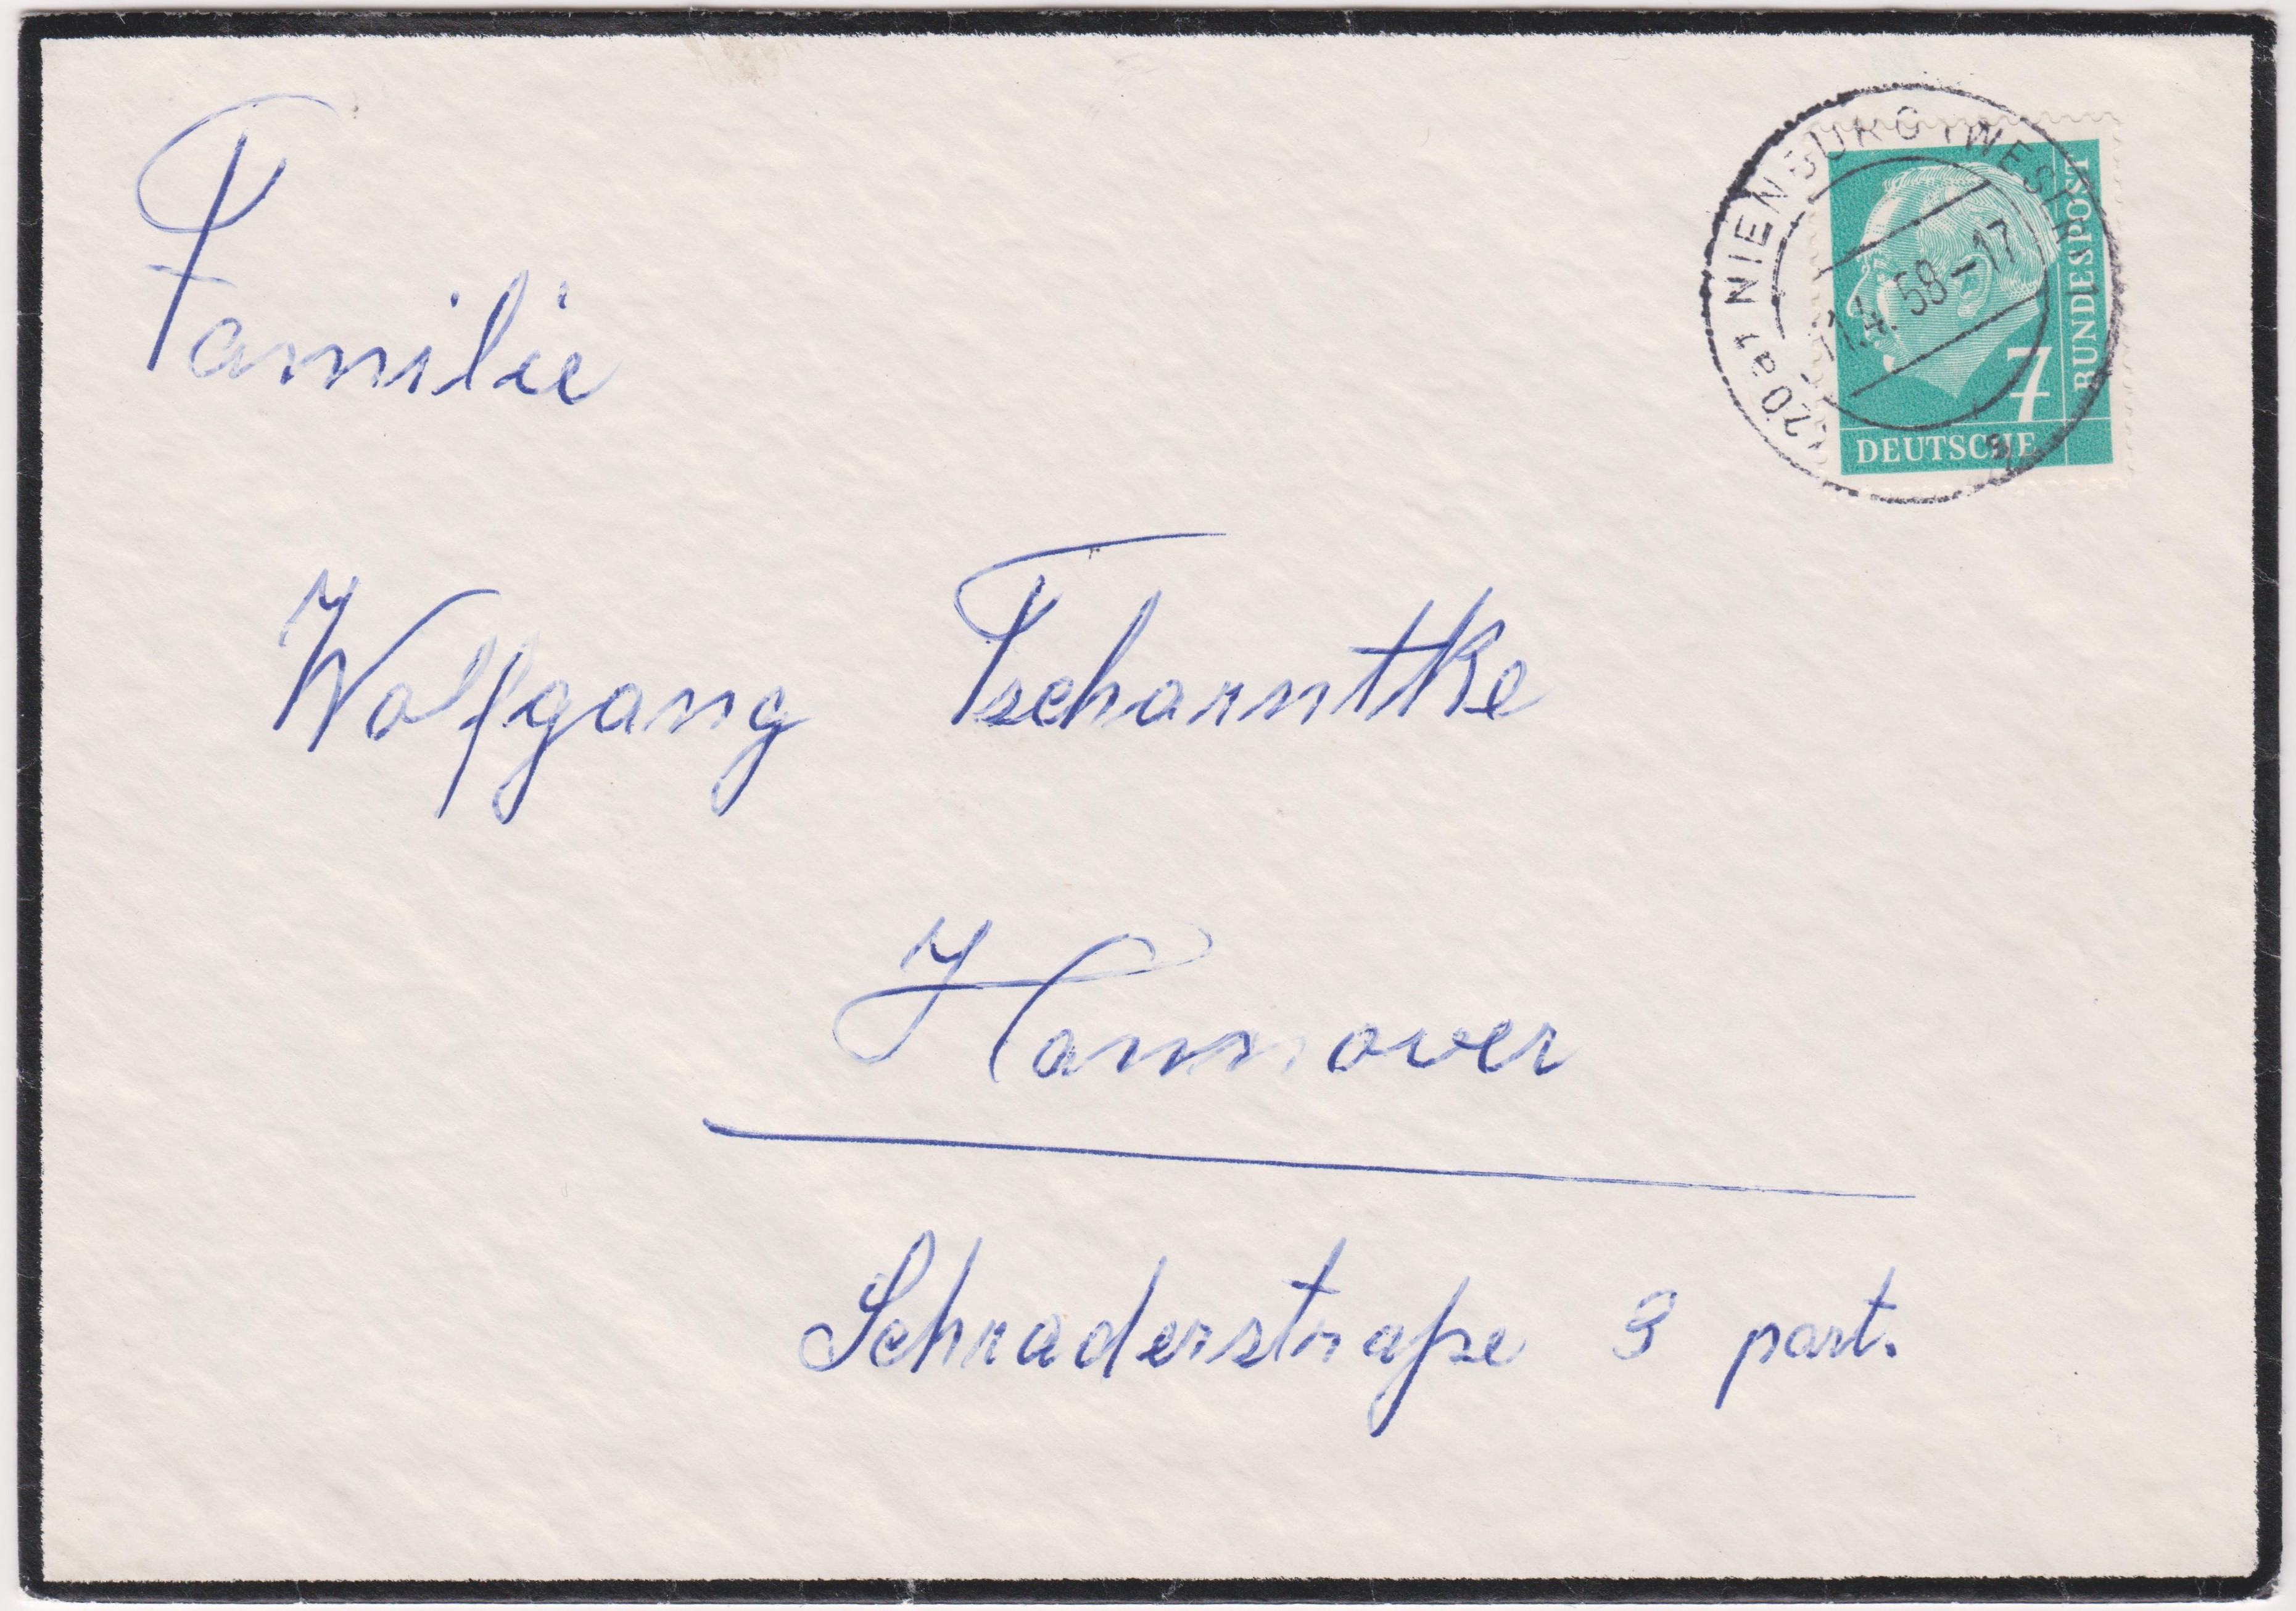 Familie
Wolfgang Tscharntke
Hannover
Schraderstraße 3 part.
(20a) NIENBURG (WESER)
58-17
7
DEUTSCHE
BUNDESPOST